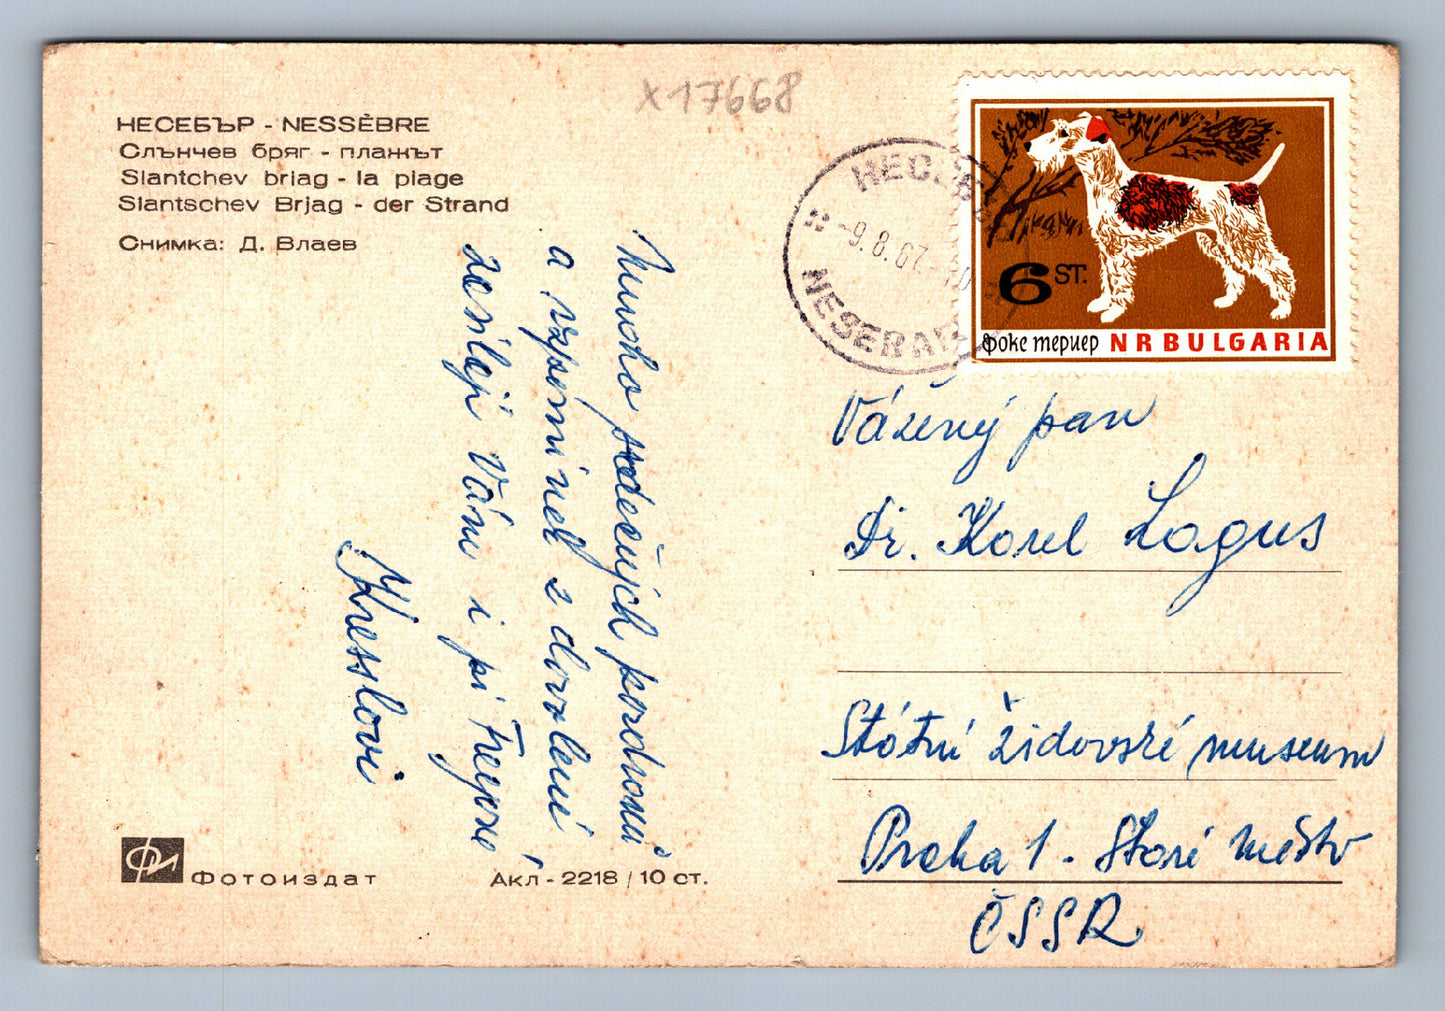 x17668
НЕСЕБЪР - NESSÈBRE
Слънчев бряг - плажът
Slantchev briag - la plage
Slantschev Brjag - der Strand
Снимка: Д. Влаев
НЕСЕБЪР
-9.8.67-10
NESEBAR
6 ST.
фокс териер NRBULGARIA
Mnoho srdečných pozdravů
a vzpomínek z dovolené
zasílají Vám i pí Freyové
Kresslovi
Vážený pan
Dr. Karel Lagus
Státní židovské museum
Praha 1. Staré město
ČSSR
ФИ
Фотоиздат
Акл-2218/10 ст.